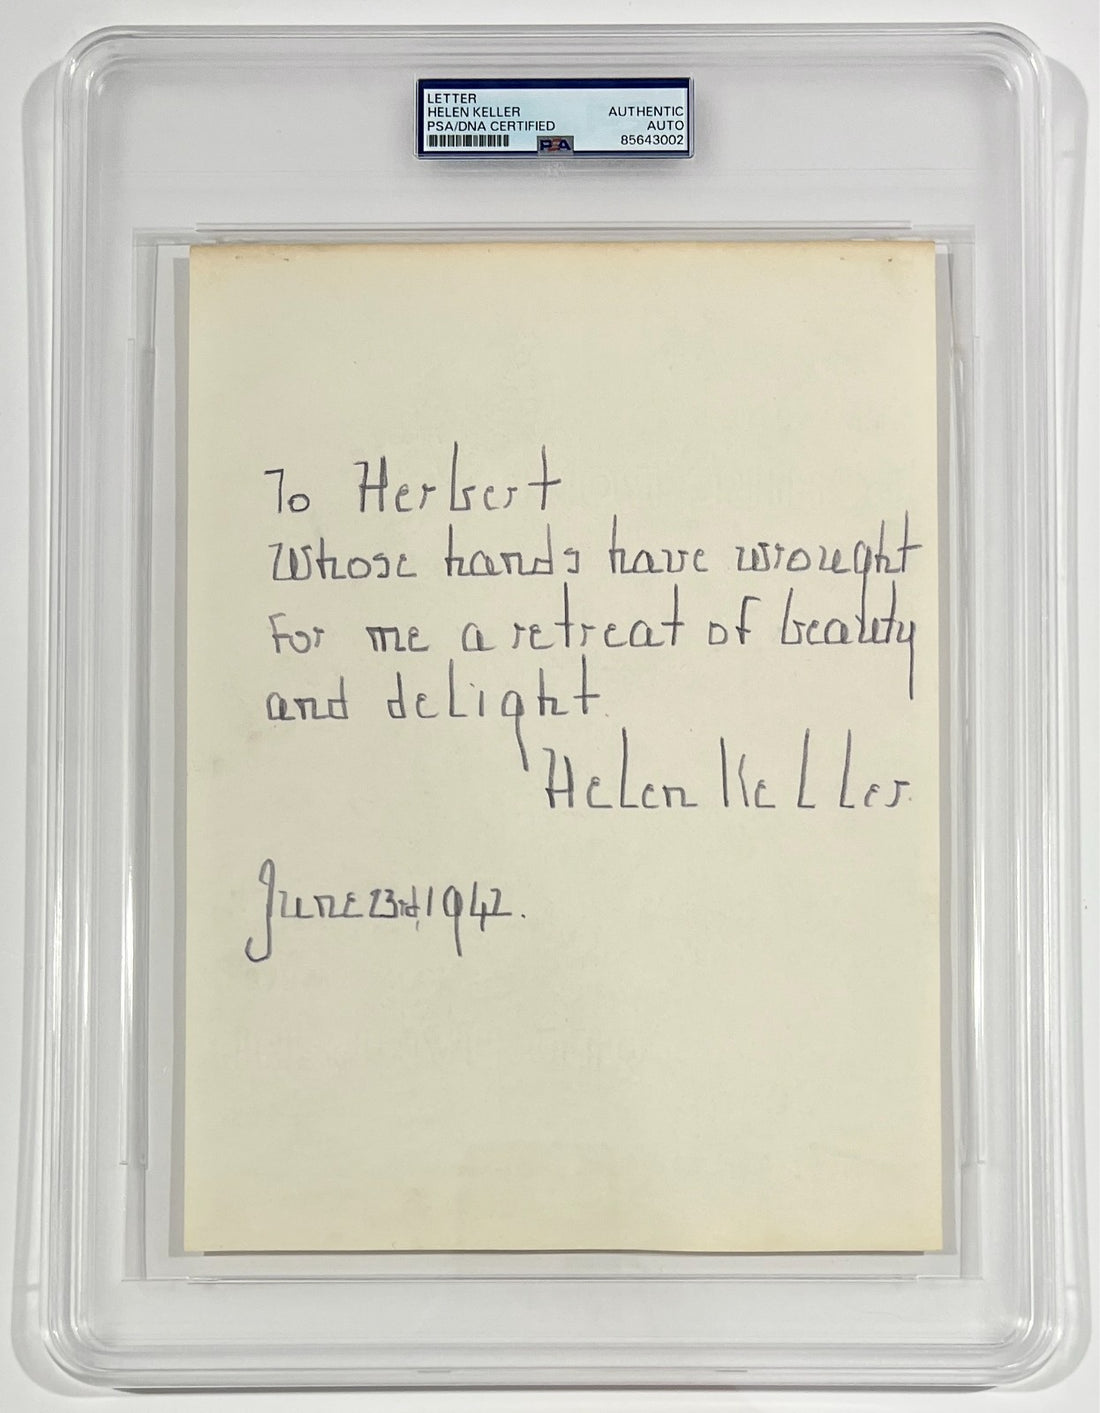 LETTER
HELEN KELLER
PSA/DNA CERTIFIED
AUTHENTIC
AUTO
85643002
PSA
To Herbert
Whose hands have wrought
For me a retreat of beauty
and delight.
Helen Keller.
June 23rd, 1942.